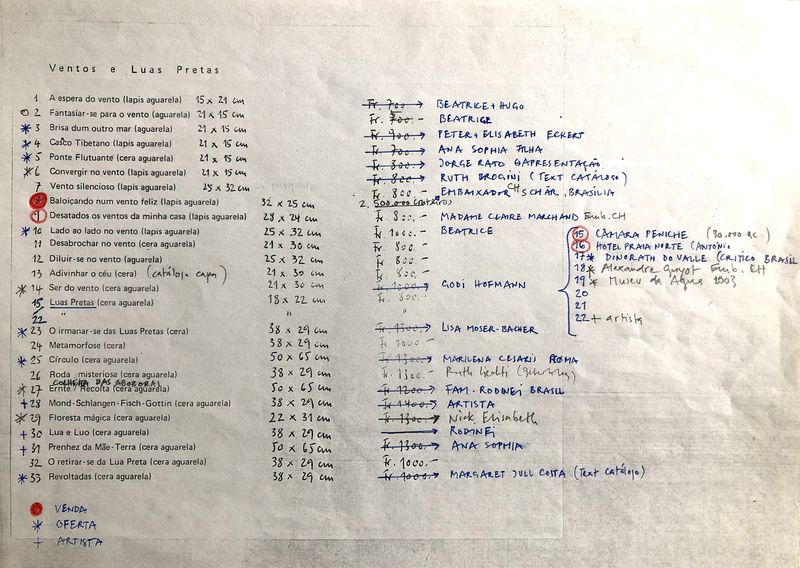 Ventos e Luas Pretas
1 A espera do vento (lapis aguarela) 15 x 21 cm Fr. 700.- BEATRICE + HUGO
2 Fantasiar-se para o vento (aguarela) 21 x 15 cm Fr. 700.- BEATRICE
* 3 Brisa dum outro mar (aguarela) 21 x 15 cm Fr. 900.- PETER + ELISABETH ECKERT
* 4 Casco Tibetano (lapis aguarela) 21 x 15 cm Fr. 700.- ANA SOPHIA FILHA
* 5 Ponte Flutuante (cera aguarela) 21 x 15 cm Fr. 800.- JORGE RATO APRESENTAÇÃO
* 6 Convergir no vento (lapis aguarela) 21 x 15 cm Fr. 800.- RUTH BROGINI (TEXT CATÁLOGO)
7 Vento silencioso (lapis aguarela) 25 x 32 cm Fr. 800.- EMBAIXADOR CH SCHÄR, BRASILIA
8 Baloiçando num vento feliz (lapis aguarela) 32 x 25 cm 2.500.000 cruzeiros
9 Desatados os ventos da minha casa (lapis aguarela) 28 x 24 cm Fr. 800.- MADAME CLAIRE MARCHAND Emb. CH
* 10 Lado ao lado no vento (lapis aguarela) 25 x 32 cm Fr. 1000.- BEATRICE
11 Desabrochar no vento (cera aguarela) 21 x 30 cm Fr. 800.-
12 Diluir-se no vento (aguarela) 25 x 32 cm Fr. 800.-
13 Adivinhar o céu (cera) (catálogo capa) 21 x 30 cm Fr. 800.-
* 14 Ser do vento (cera aguarela) 21 x 30 cm Fr. 1000.- GODI HOFMANN
15 Luas Pretas (cera aguarela) 18 x 22 cm Fr. 800.-
22 "
15 CÂMARA PENICHE (30.000 esc.)
16 HOTEL PRAIA NORTE (ANTÓNIO
17 * DINORATH DO VALLE (CRITICO BRASIL
18 * Alexandre Guyot Emb. CH
19 * Museu da Água 2003
20
21
22 + artista
* 23 O irmanar-se das Luas Pretas (cera) 38 x 29 cm Fr. 1300.- LISA MOSER-BACHER
24 Metamorfose (cera) 38 x 29 cm Fr. 1000.-
* 25 Círculo (cera aguarela) 50 x 65 cm Fr. 1300.- MARILENA CESARIS ROMA
26 Roda misteriosa (cera aguarela) 38 x 29 cm Fr. 1300.- Ruth
COLHEITA DAS ABOBORAS
* 27 Ernte / Recolta (cera aguarela) 50 x 65 cm Fr. 1200.- FAM. RODINEI BRASIL
+ 28 Mond-Schlangen-Fisch-Gottin (cera aguarela) 38 x 29 cm Fr. 1400.- ARTISTA
* 29 Floresta mágica (cera aguarela) 22 x 31 cm Fr. 1300.- Nick Elisabeth
+ 30 Lua e Luo (cera aguarela) 38 x 29 cm RODINEI
+ 31 Prenhez da Mãe-Terra (cera aguarela) 50 x 65 cm Fr. 1300.- ANA SOPHIA
32 O retirar-se da Lua Preta (cera aguarela) 38 x 29 cm Fr. 1000.-
* 33 Revoltadas (cera aguarela) 38 x 29 cm Fr. 1000.- MARGARET JULL COSTA (Text Catálogo)
VENDA
* OFERTA
+ ARTISTA